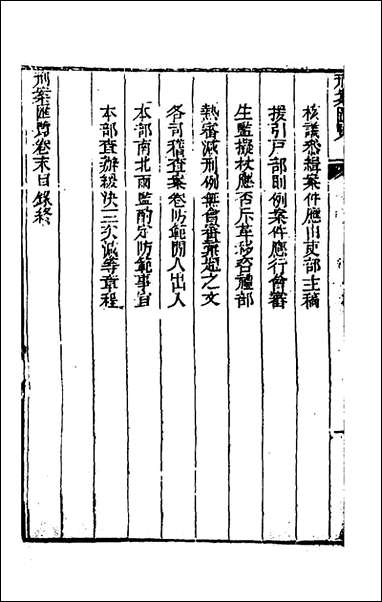 刑案匯覽
核議承緝案件應由吏部主稿
援引戶部則例案件應行會審
生監擬杖應否斥革移咨禮部
熱審減刑例無會審彙題之文
各司稽查案卷防範閒人出入
本部南北兩監酌定防範事宜
本部查辦緩決三次減等章程
刑案匯覽卷末目錄終